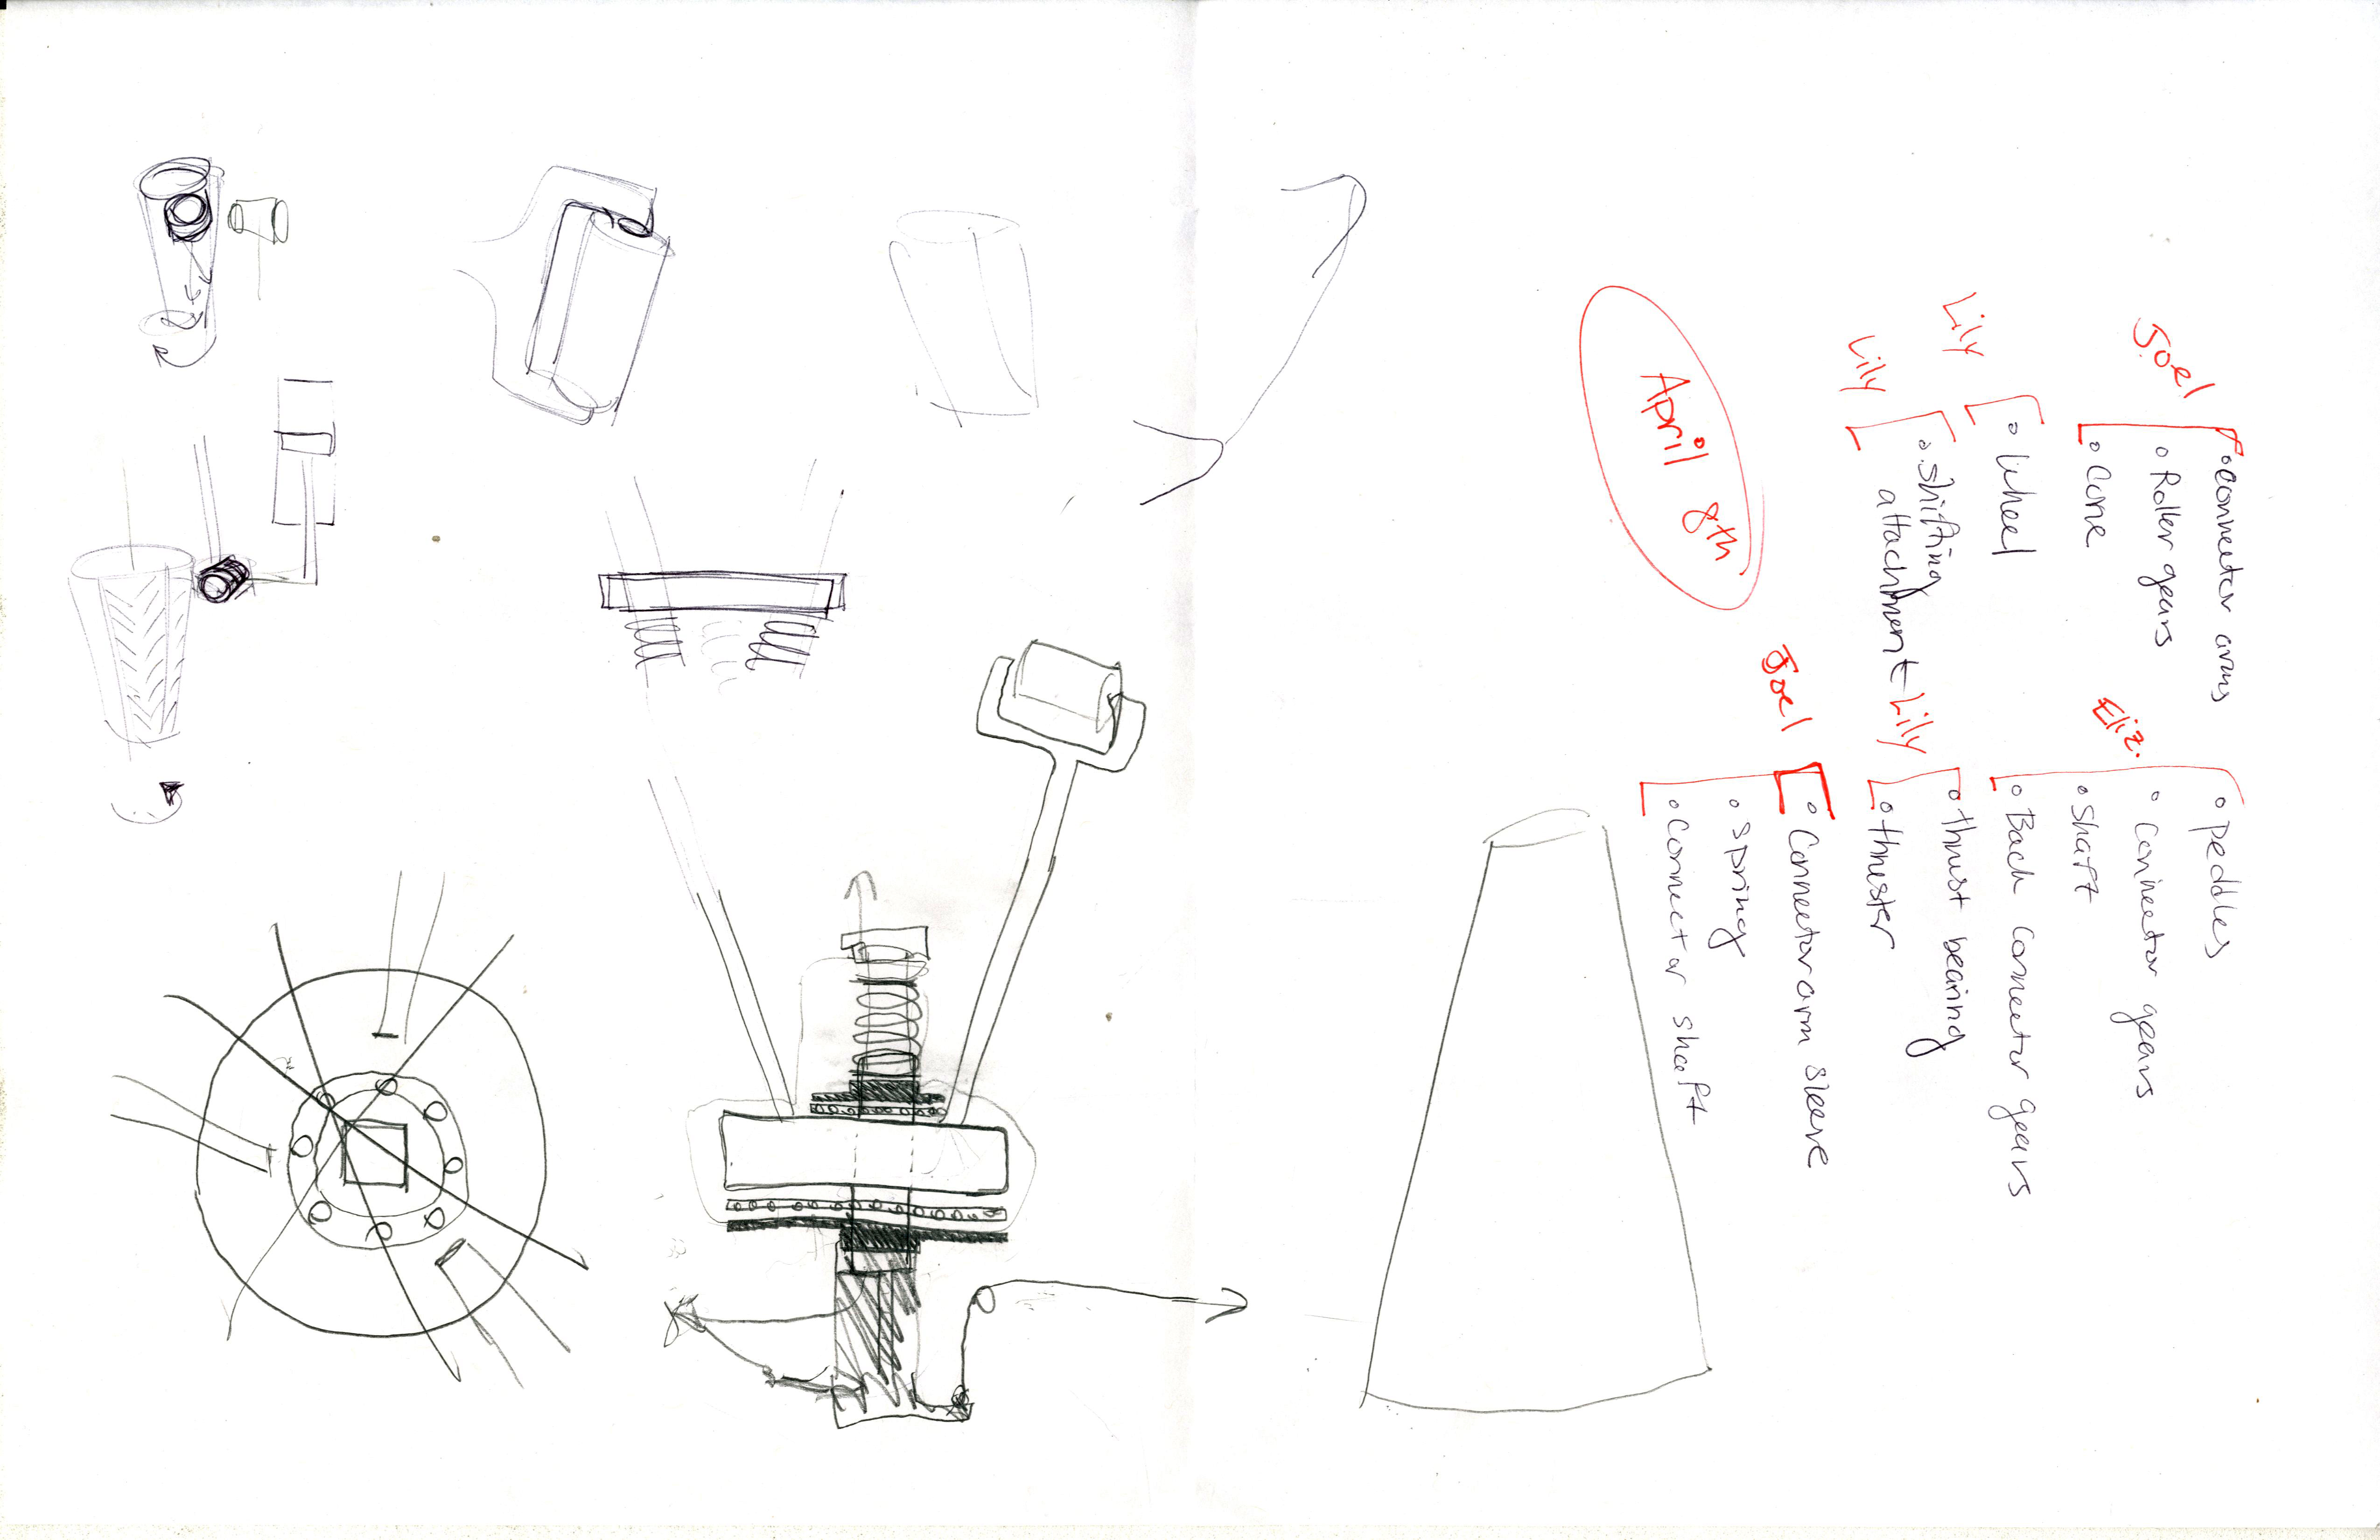 Joel
• connector arms
• Roller gears
• Cone
Lily
• Wheel
Lily
• Shifting
attachment
April 8th
Eliz.
• peddles
• Connector gears
• Shaft
• Back Connector gears
Lily
• thrust bearing
• thruster
Joel
• Connector arm sleeve
• spring
• Connector shaft